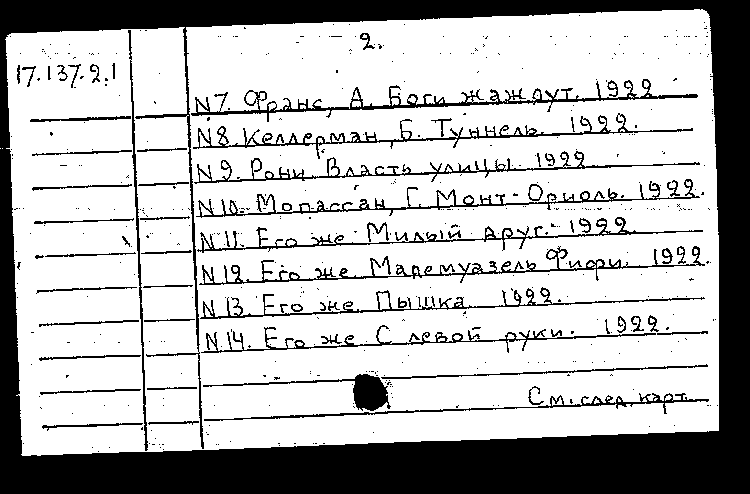 2.
17.137.2.1
N7. Франс, А. Боги жаждут. 1922
N8. Келлерман, Б. Туннель. 1922.
N9. Рони. Власть улицы. 1922
N10. Мопассан, Г. Монт-Ориоль. 1922.
N11. Его же Милый друг. 1922.
N12. Его же. Мадемуазель Фифи. 1922.
N13. Его же. Пышка 1922.
N14. Его же С левой руки. 1922.
См. след. карт.